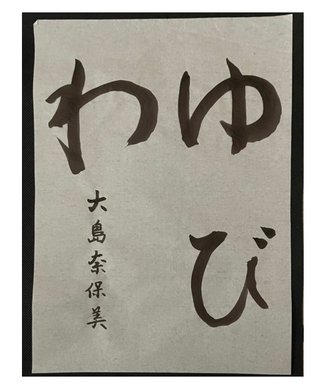 ゆび
わ
大島奈保美